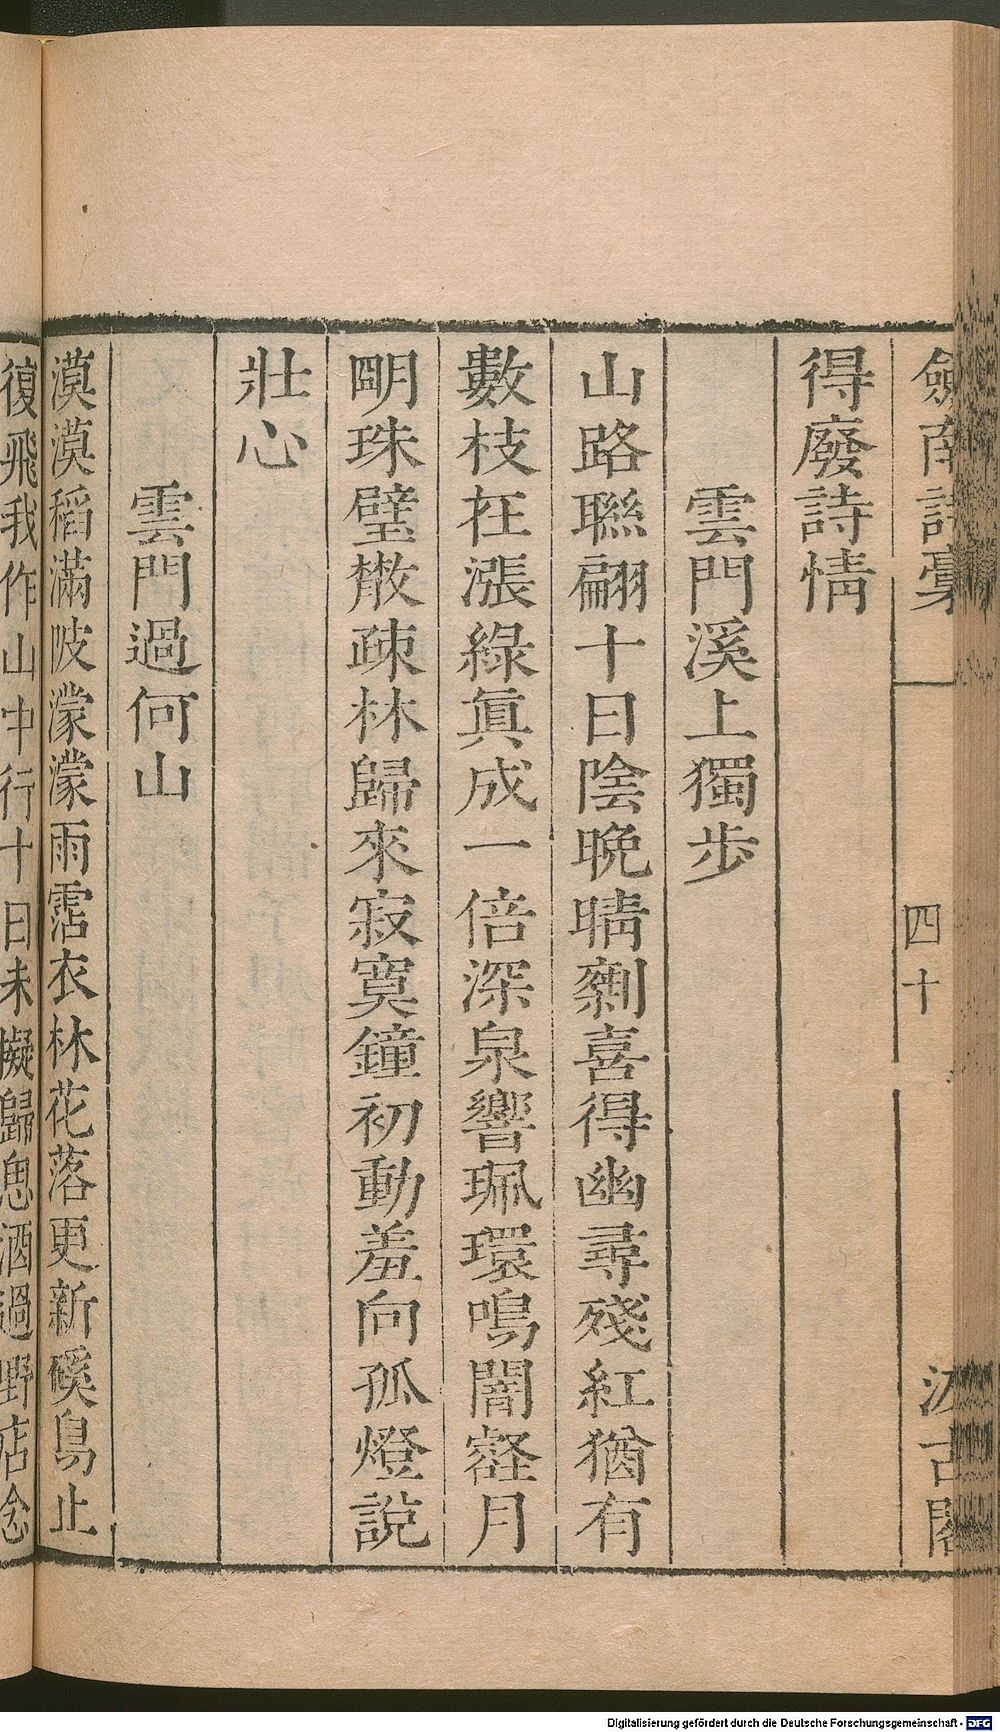 劒南詩稾
四十
汲古閣
得廢詩情
雲門溪上獨步
山路聮翩十日陰晚晴剩喜得幽尋殘紅猶有
數枝在漲綠眞成一倍深泉響珮環鳴闇壑月
明珠璧散疎林歸來寂寞鐘初動羞向孤燈說
壯心
雲門過何山
漠漠稻滿陂濛濛雨霑衣林花落更新磎鳥止
復飛我作山中行十日未擬歸恖酒過野店念
Digitalisierung gefördert durch die Deutsche Forschungsgemeinschaft - DFG